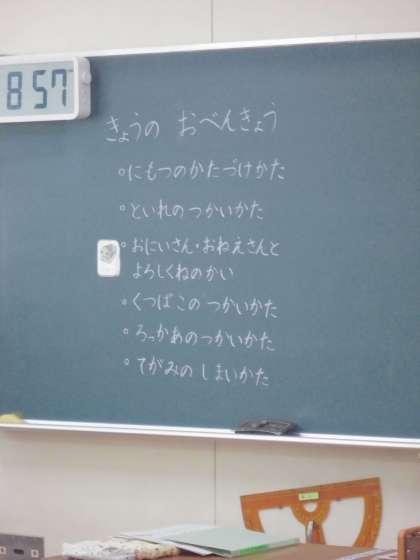 8:57
きょうの おべんきょう
○にもつのかたづけかた
○といれのつかいかた
○おにいさん・おねえさんと
よろしくねのかい
○くつばこのつかいかた
○ろっかあのつかいかた
○てがみのしまいかた